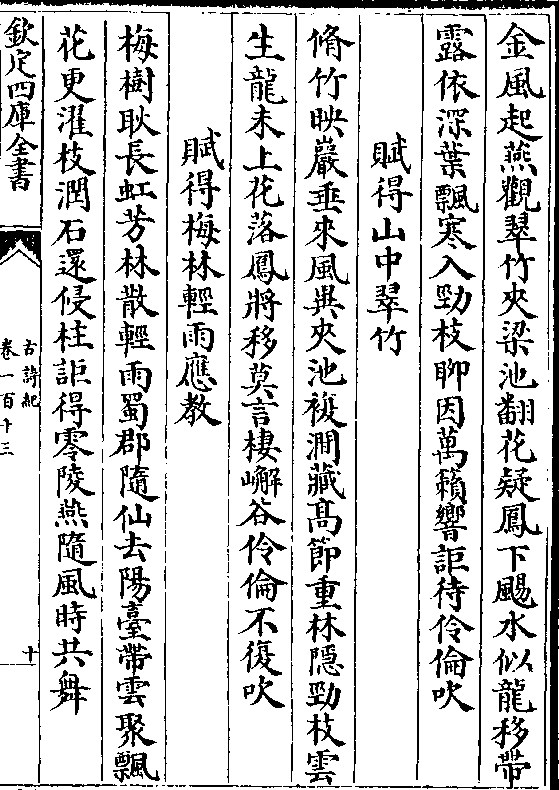 金風起燕觀翠竹夾梁池翻花疑鳳下颺水似龍移帶
露依深葉飄寒入勁枝聊因萬籟響詎待伶倫吹
賦得山中翠竹
脩竹映巖垂來風異夾池複澗藏髙節重林隱勁枝雲
生龍未上花落鳳將移莫言棲嶰谷伶倫不復吹
賦得梅林輕雨應教
梅樹耿長虹芳林散輕雨蜀郡隨仙去陽臺帶雲聚飄
花更濯枝潤石還侵柱詎得零陵燕隨風時共舞
欽定四庫全書
古詩紀
卷一百十三
十